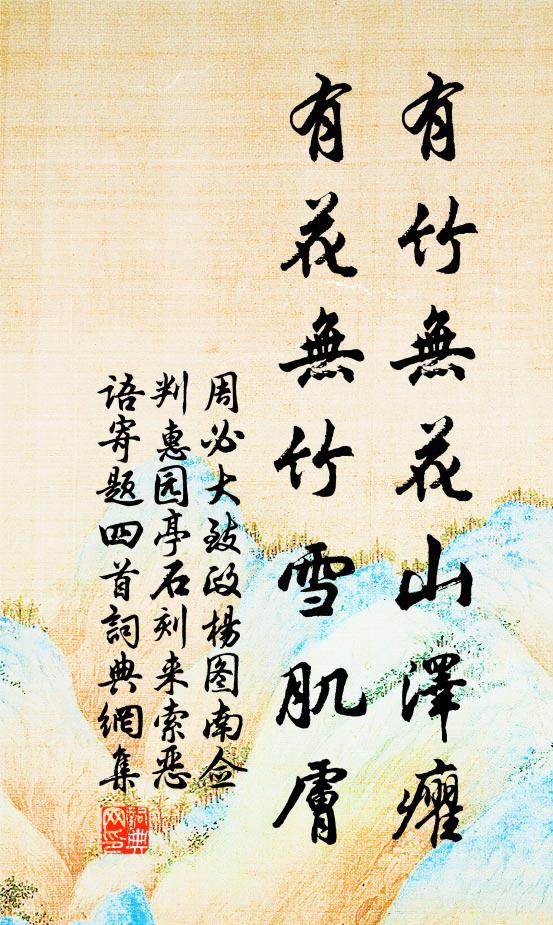 有竹無花山澤癯
有花無竹雪肌膚
周必大致政楊图南佥
判惠园亭石刻来索恶
语寄题四首詞典網集
詞典網印